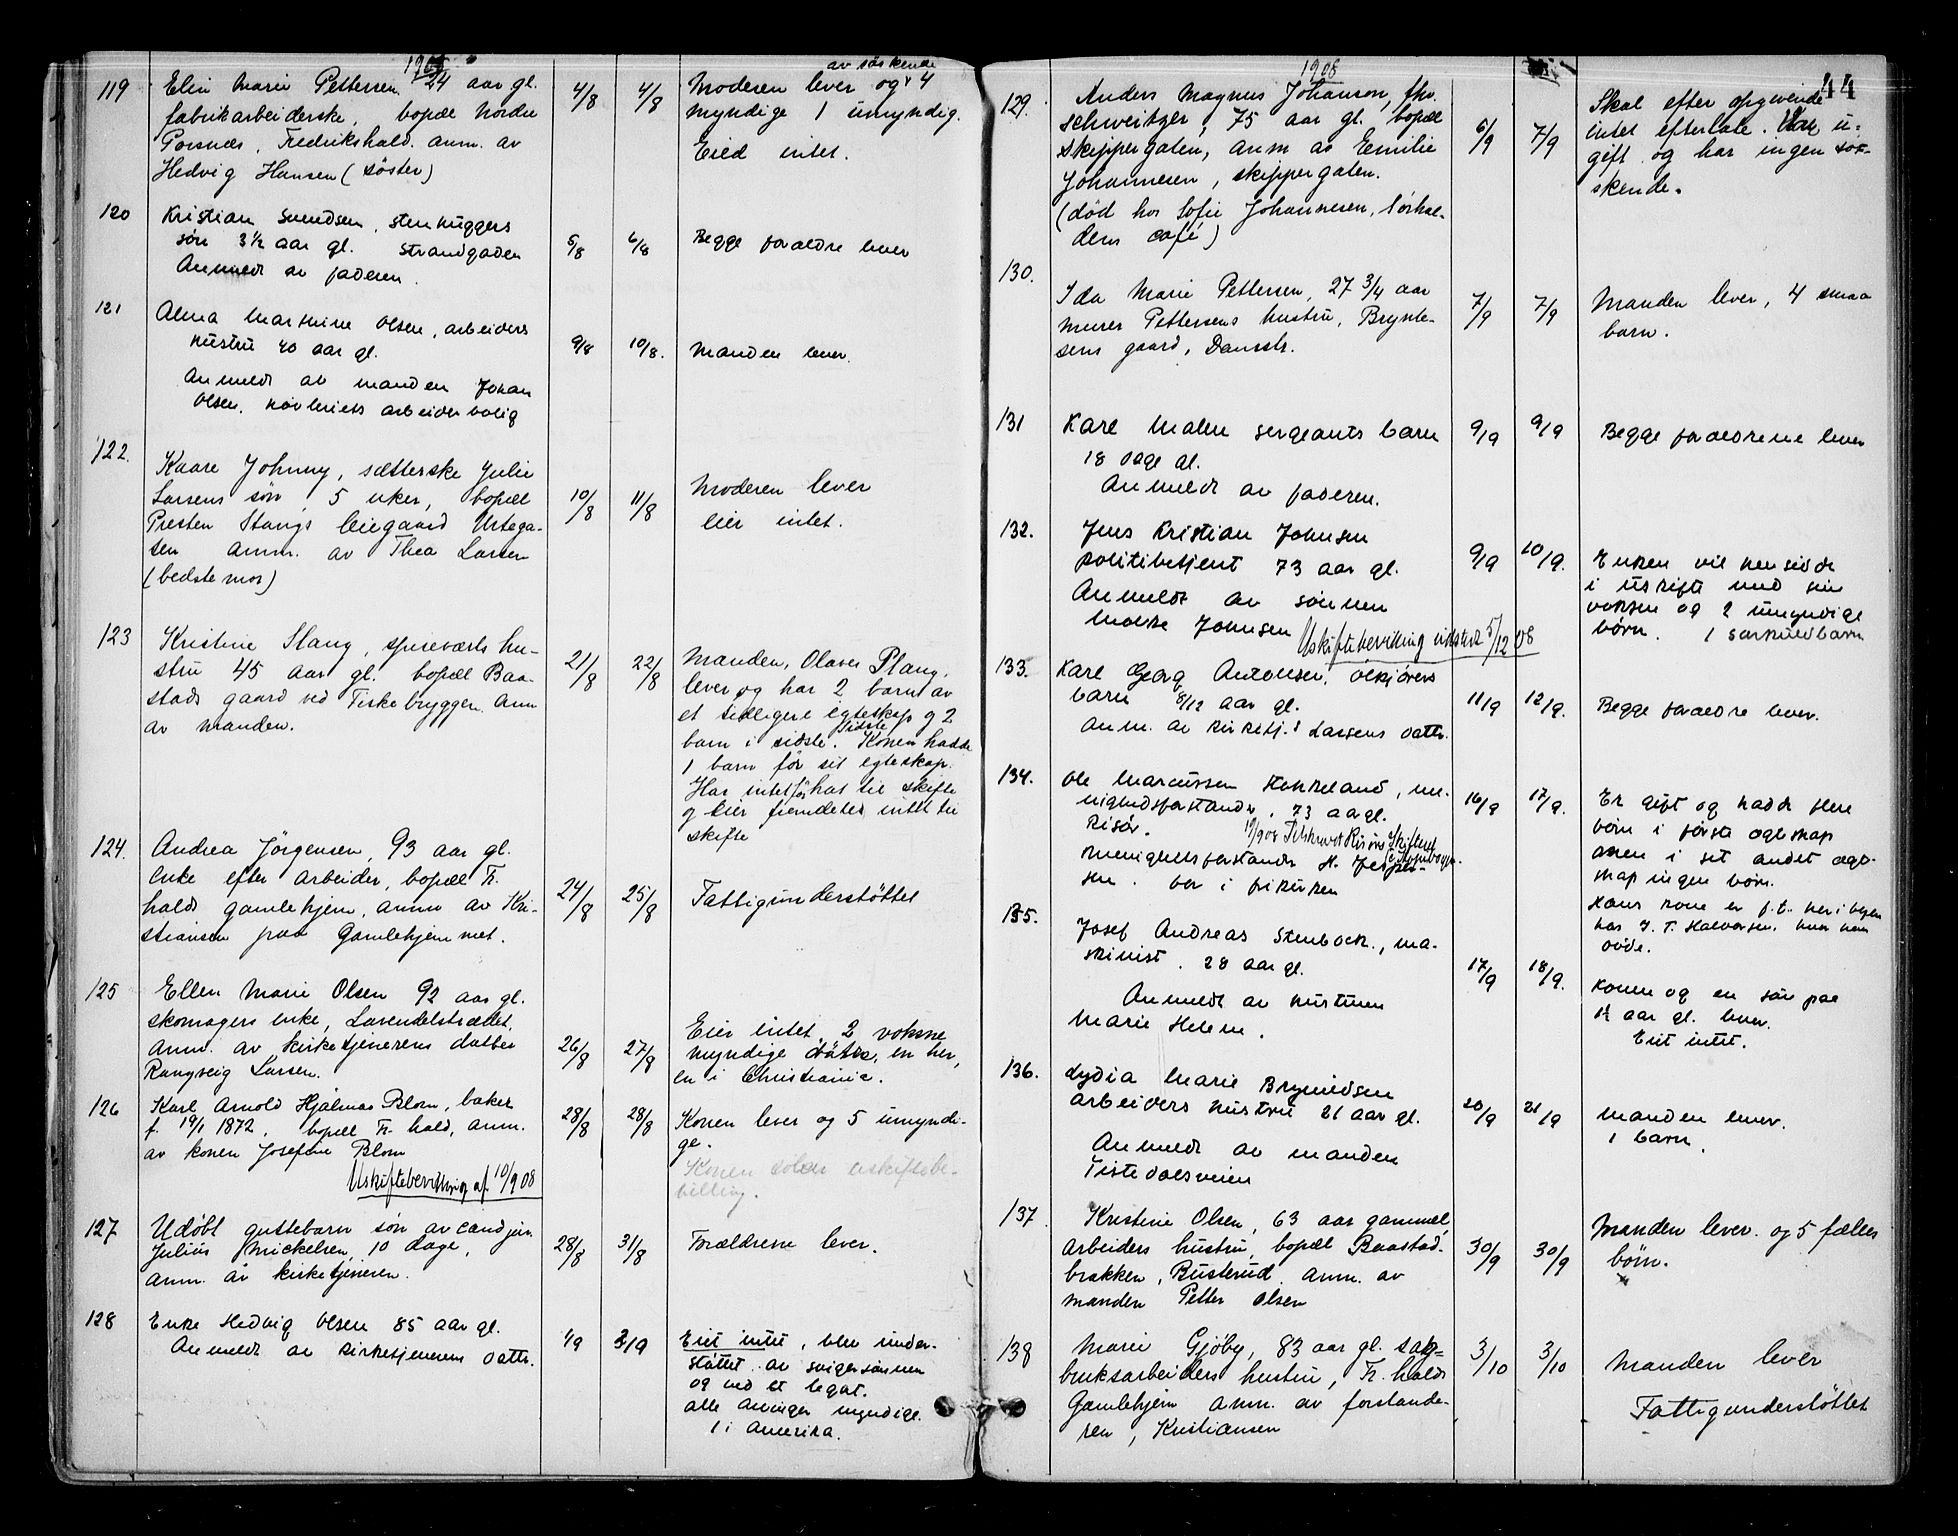 1908
119 Elin Marie Pettersen 24 aar gl.
fabrikarbeiderske, bopæl Nordre
Porsnæs, Fredrikshald. anm. av
Hedvig Hansen (søster)
4/8 4/8
av søskende
Moderen lever og 4
myndige 1 umyndig.
Eied intet.
120 Kristian Svendsen, stenhuggers
søn 3½ aar gl. Strandgaden
Anmeldt av faderen.
5/8 6/8
Begge forældre lever
121 Alma Marthine Olsen, arbeiders
hustru 40 aar gl.
Anmeldt av manden Johan
Olsen, Høvleriets arbeiderbolig
9/8 10/8.
Manden lever.
122. Kaare Johnny, sætterske Julie
Larsens søn, 5 uker, bopæl
Presten Stangs leiegaard Urtega-
ten anm. av Thea Larsen
(bedstemor)
10/8 11/8
Moderen lever
eier intet.
123 Kristine Stang, spiseværts hu-
stru 45 aar gl. bopæl Baa-
stads gaard ved Fiskebryggen. Anm
av manden.
21/8 22/8
Manden, Olaves Stang,
lever og har 2 barn av
et tidligere egteskap og 2
barn i sidste. Konen hadde
1 barn før sit egteskap.
Har intet før hat til skifte
og eier fremdeles intet til
skifte
124. Andrea Jørgensen, 93 aar gl.
enke efter arbeider, bopæl Fr.
halds gamlehjem, anm av Kri-
stiansen paa Gamlehjemmet.
24/8 25/8
Fattigunderstøttet
125 Ellen Marie Olsen 92 aar gl.
skomagers enke, Lavendelstrædet,
Anm. av kirketjenerens datter
Rangveig Larsen.
26/8 27/8
Eier intet, 2 voksne
myndige døtre, en her,
en i Christiania.
126 Karl Arnold Hjalmar Blom, baker
f. 19/1 1872, bopæl Fr. hald, anm.
av konen Josefine Blom
Uskiftebevilling af 10/9 08
28/8 28/8
Konen lever og 5 umyndi-
ge.
Konen søker uskiftebe-
villing.
127 Udøbt guttebarn søn av cand jur.
Julius Mickelsen, 10 dage,
anm. av kirketjeneren.
28/8 31/8
Forældrene lever.
128 Enke Hedvig Olsen 85 aar gl.
Anmeldt av kirketjenerens datter.
1/9 3/9
Eiet intet, blev under-
støttet av svigersønnen
og ved et legat.
Alle arvinger myndige.
1 i Amerika.
44
1908
129. Anders Magnus Johanson, fhv.
schweitzer, 75 aar gl. bopæl
Skippergaten, anm av Emilie
Johannesen, Skippergaten.
(død hos Sofie Johannesen, Sørhal-
dens café)
6/9 7/9
Skal efter opgivende
intet efterlate. Var u-
gift og har ingen søs-
kende.
130. Ida Marie Pettersen, 27 3/4 aar
murer Pettersens hustru, Brynte-
sens gaard, Damstr.
7/9 7/9
Manden lever, 4 smaa
barn.
131 Karl Malm sergeants barn
18 dage gl.
Anmeldt av faderen.
9/9 9/9
Begge forældrene lever
132. Jens Kristian Johnsen
politibetjent 73 aar gl.
Anmeldt av sønnen
Johnsen Uskiftebevilling utstedt 5/12 08
9/9 10/9.
Enken vil hensidde
i uskifte med sin
voksen og 2 umyndige
børn. 1 særkuldbarn
133. Karl Georg Antonsen, ølkjørers
barn 8/12 aar gl.
anm. av kirketj. Larsens datter.
11/9 12/9.
Begge forældre lever.
134. Ole Marcussen Hokkeland, me-
nighedsforstander, 73 aar gl.
Risør. 19/9 08 Tilskrevet Risørs Skifteret
Menighetsforstander H. Jesper-
sen. bor i
16/9 17/9.
Er gift og hadde flere
børn i første egteskap
men i sit andet egte-
skap ingen børn.
Hans kone er f.t. her i byen
hos J. T. Halvorsen, hvor han
døde.
135. Josef Andreas Stenbock, ma-
skinist. 28 aar gl.
Anmeldt av hustruen
Marie Helene.
17/9 18/9.
Konen og en søn paa
1½ aar gl. lever.
Eiet intet.
136. Lydia Marie Brynildsen
arbeiders hustru 21 aar gl.
Anmeldt av manden
Tistedalsveien
20/9 21/9
Manden lever.
1 barn.
137. Kristine Olsen, 63 aar gammel
arbeiders hustru, bopæl Baastad-
brakken, Busterud. anm. av
manden Petter Olsen
30/9 30/9
Manden lever. og 5 fælles
børn.
138 Marie Gjøby, 83 aar gl. sag-
bruksarbeiders hustru, Fr. halds
Gamlehjem anm. av forstande-
ren, Kristiansen
3/10 3/10
Manden lever
Fattigunderstøttet